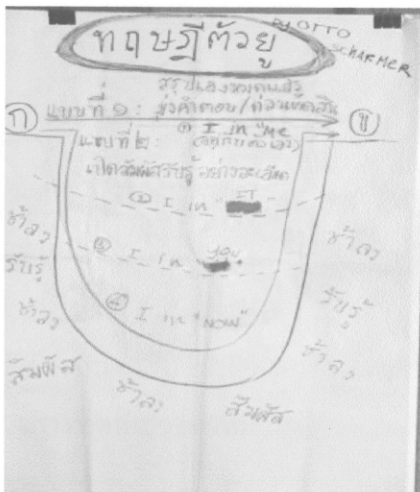 ทฤษฎีตัวยู
By OTTO
SCHARMER
สรุปเองตามคนเดียว
ก
แบบที่ ๑: มุ่งคำตอบ/ด่วนตัดสิน
ข
① I in "Me"
แบบที่ ๒:
เปิดสัมผัสรับรู้อย่างละเอียด
② I in "IT"
③ I in you
④ I in "now"
ช้าลง
รับรู้
ช้าลง
สัมผัส
ช้าลง
สัมผัส
ช้าลง
รับรู้
ช้าลง